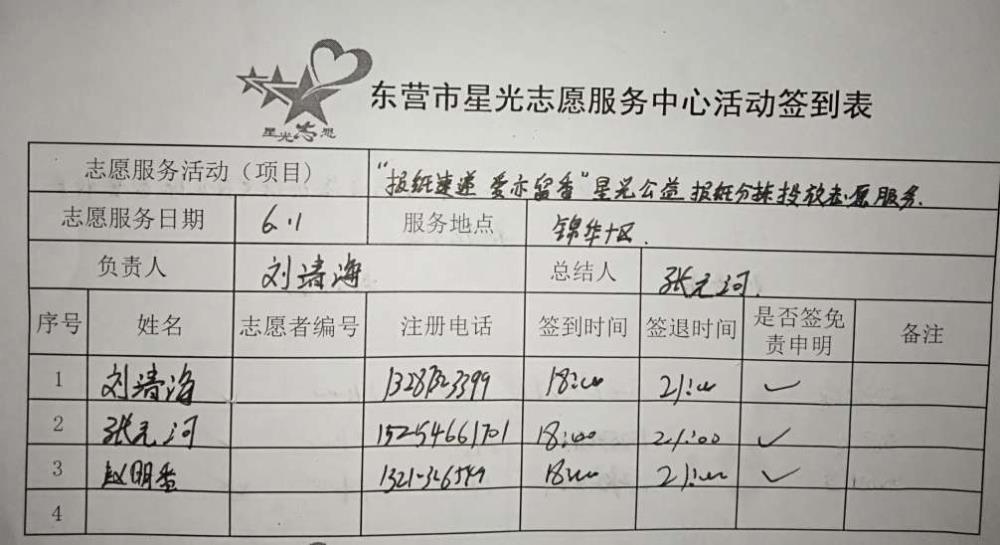 星光志愿
东营市星光志愿服务中心活动签到表
志愿服务活动（项目） “报纸速递 爱亦留香”星光公益 报纸分拣投放志愿服务.
志愿服务日期 6.1 服务地点 锦华十区.
负责人 刘清海 总结人 张元河.
序号 姓名 志愿者编号 注册电话 签到时间 签退时间 是否签免责申明 备注
1 刘清海 18:00 21:00 ✓
2 张元河 15254661701 18:00 21:00 ✓
3 赵明香 18:00 21:00 ✓
4